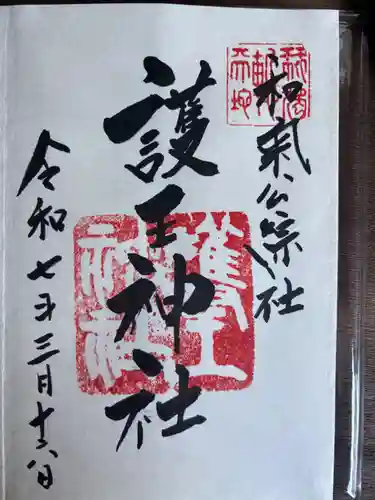 和氣公宗社
護王神社
令和七年三月十六日
護王
神社